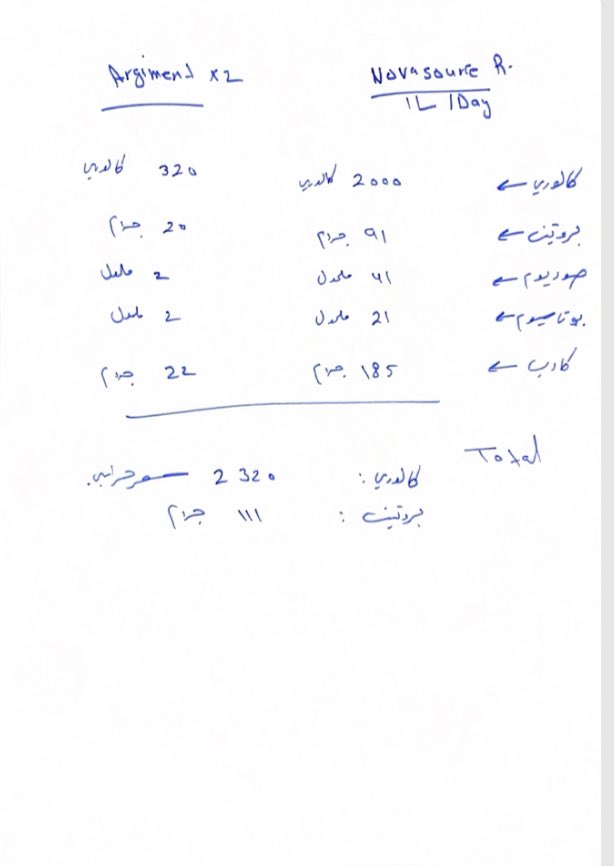 Argiment x2    Novasource R.
1L / 1Day
كالوري ← 2000 كالوري    320 كالوري
بروتين ← 91 جرام    20 جرام
صوديوم ← 41 ملمول    2 ملمول
بوتاسيوم ← 21 ملمول    2 ملمول
كارب ← 185 جرام    22 جرام
Total
كالوري : 2320 سعر حراري.
بروتين : 111 جرام